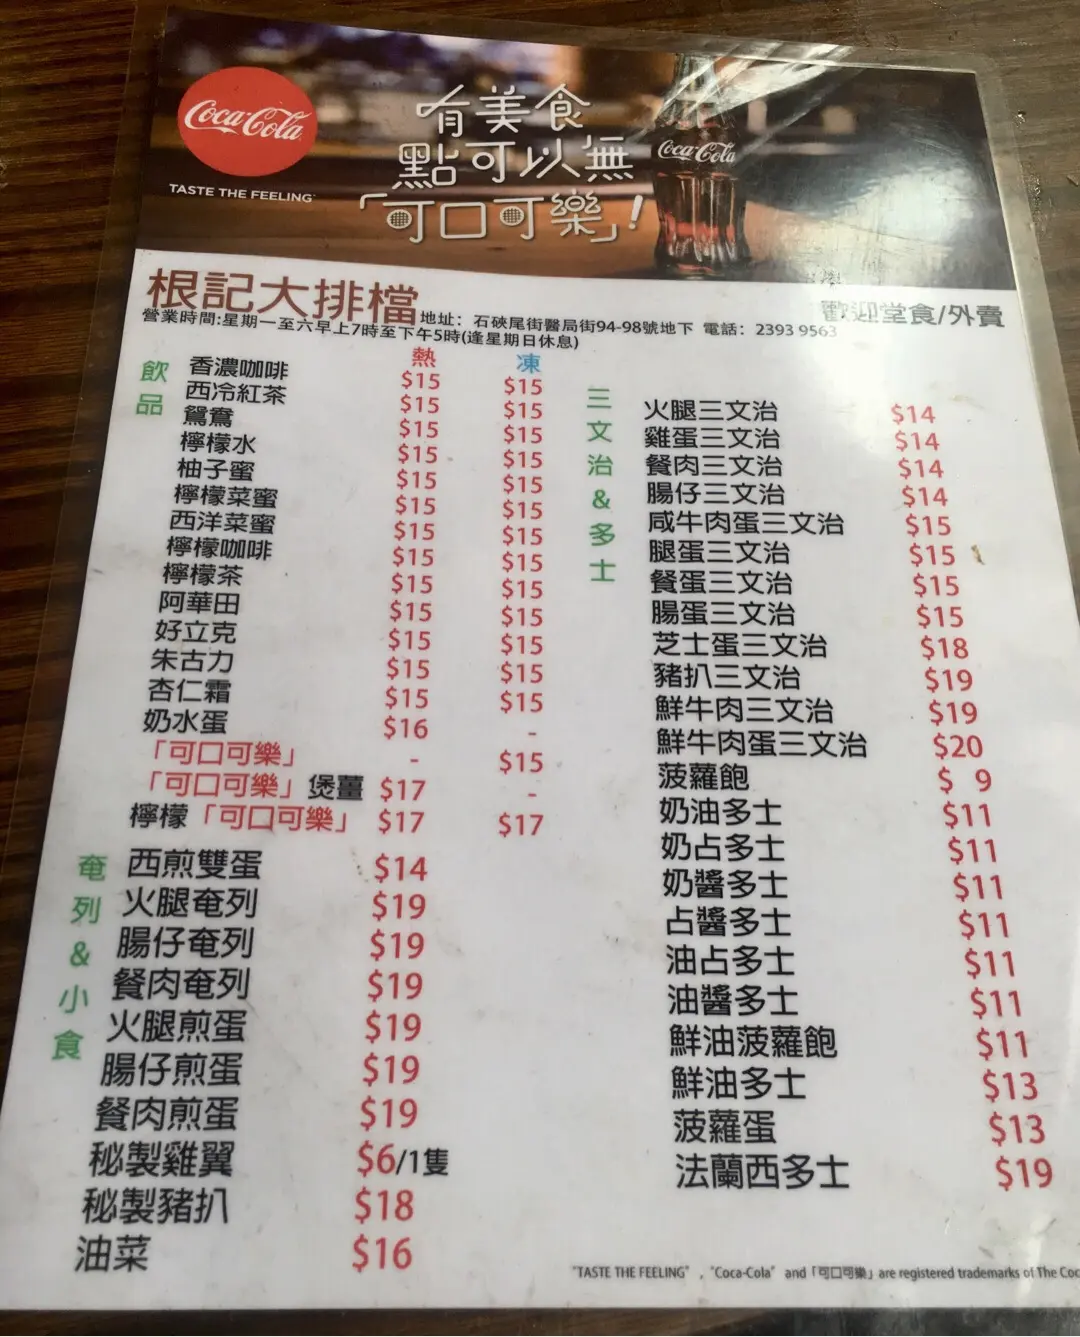 Coca-Cola
TASTE THE FEELING
有美食
點可以無
「可口可樂」!
Coca-Cola
根記大排檔
歡迎堂食/外賣
營業時間:星期一至六早上7時至下午5時(逢星期日休息)
地址：石硤尾街醫局街94-98號地下 電話：2393 9563
飲品
熱 凍
香濃咖啡 $15 $15
西冷紅茶 $15 $15
鴛鴦 $15 $15
檸檬水 $15 $15
柚子蜜 $15 $15
檸檬菜蜜 $15 $15
西洋菜蜜 $15 $15
檸檬咖啡 $15 $15
檸檬茶 $15 $15
阿華田 $15 $15
好立克 $15 $15
朱古力 $15 $15
杏仁霜 $15 $15
奶水蛋 $16 -
「可口可樂」 - $15
「可口可樂」煲薑 $17 -
檸檬「可口可樂」 $17 $17
奄列&小食
西煎雙蛋 $14
火腿奄列 $19
腸仔奄列 $19
餐肉奄列 $19
火腿煎蛋 $19
腸仔煎蛋 $19
餐肉煎蛋 $19
秘製雞翼 $6/1隻
秘製豬扒 $18
油菜 $16
三文治&多士
火腿三文治 $14
雞蛋三文治 $14
餐肉三文治 $14
腸仔三文治 $14
咸牛肉蛋三文治 $15
腿蛋三文治 $15
餐蛋三文治 $15
腸蛋三文治 $15
芝士蛋三文治 $18
豬扒三文治 $19
鮮牛肉三文治 $19
鮮牛肉蛋三文治 $20
菠蘿飽 $ 9
奶油多士 $11
奶占多士 $11
奶醬多士 $11
占醬多士 $11
油占多士 $11
油醬多士 $11
鮮油菠蘿飽 $11
鮮油多士 $13
菠蘿蛋 $13
法蘭西多士 $19
"TASTE THE FEELING" , "Coca-Cola" and「可口可樂」are registered trademarks of The Coc